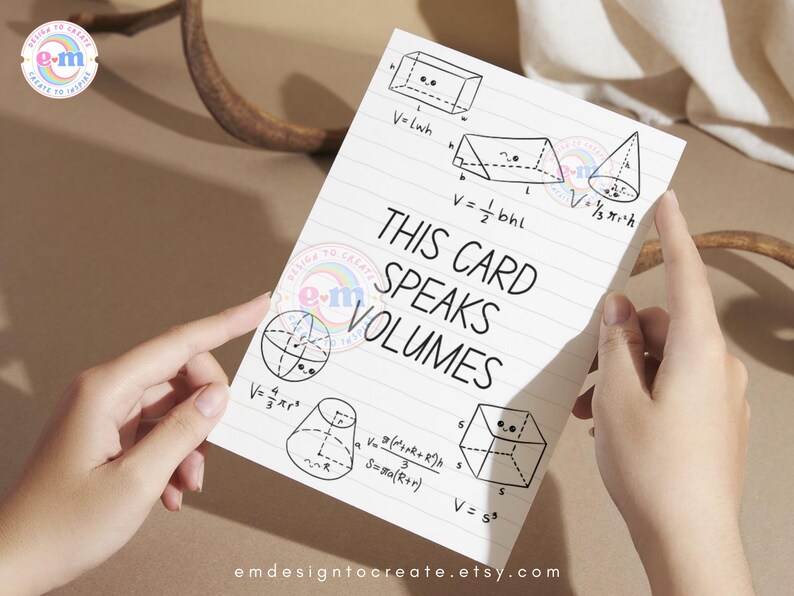 DESIGN TO CREATE
e♥m
CREATE TO INSPIRE
h
L
w
V = Lwh
h
b
L
V = 1/2 bhL
h
r
V = 1/3 πr²h
THIS CARD
SPEAKS
VOLUMES
DESIGN TO CREATE
e♥m
CREATE TO INSPIRE
r
V = 4/3 πr³
r
R
a
V = π(r²+rR+R²)h/3
S = πa(R+r)
s
s
s
V = s³
emdesigntocreate.etsy.com